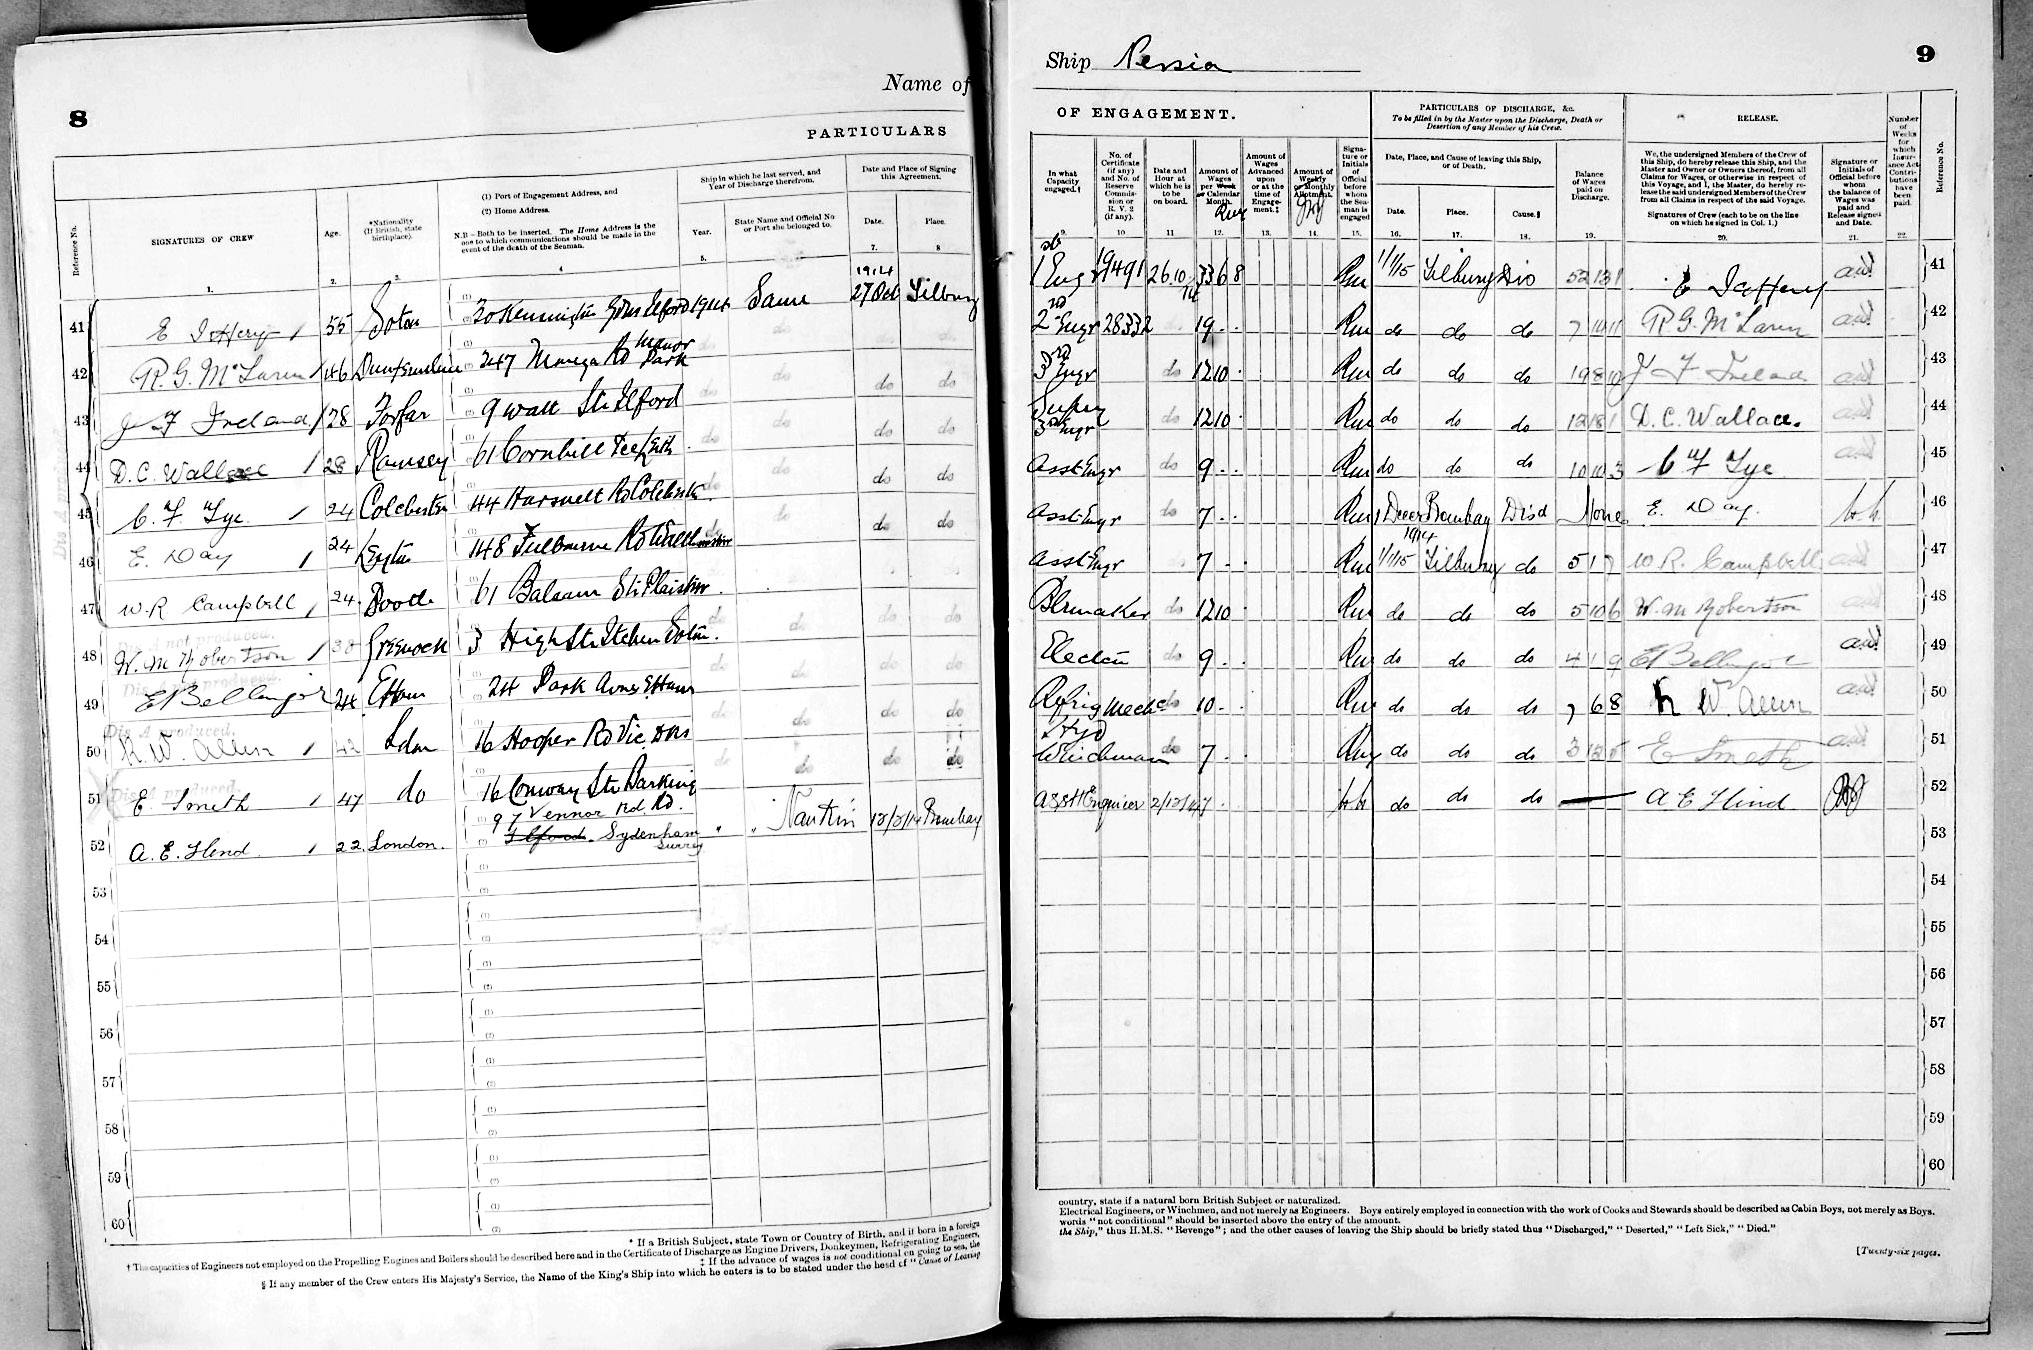 8
Name of
PARTICULARS
Reference No.
SIGNATURES OF CREW
Age.
*Nationality
(If British, state
birthplace).
(1) Port of Engagement Address, and
(2) Home Address.
N.B.—Both to be inserted. The Home Address is the
one to which communications should be made in the
event of the death of the Seaman.
Ship in which he last served, and
Year of Discharge therefrom.
Year.
State Name and Official No
or Port she belonged to.
Date and Place of Signing
this Agreement.
Date.
Place.
1. 2. 3. 4 5. 7. 8
41 E Jeffery 55 Soton 1914 Same 1914 27 Oct Tilbury
42 R. G. McLaren 46 Dunfermline 247 Monega Rd Manor Park do do do
43 J F Ireland 28 Forfar 9 Watt St Ilford do do do do
44 D. C. Wallace 28 Ramsey 61 Cornhill do do do do
45 C. F. Tye 24 Colchester 44 Harsnett Rd Colchester do do do do
46 E. Day 24 Leyton 148 Fulbourne Rd Walthamstow do do do do
47 W. R Campbell 24 Bootle 61 Balaam St Plaistow
48 W. M Robertson 38 Greenock 3 High St Itchen Soton do do do
Dis A not produced.
49 E Bellinger 24 E Ham 24 Park Avnue E Ham do do do do
Dis. A produced.
50 K. W. Allen 42 Ldn 16 Hooper Rd Vic. Dks do do do do
Dis A produced.
51 E. Smeth 47 do 16 Conway St Barking do do do do
52 A. E. Hind 22 London. 97 Vennor Rd. Ilford Sydenham Surrey " " Nankin 12/2/14 Bombay
53
54
55
56
57
58
59
60
* If a British Subject, state Town or Country of Birth, and if born in a foreign
† The capacities of Engineers not employed on the Propelling Engines and Boilers should be described here and in the Certificate of Discharge as Engine Drivers, Donkeymen, Refrigerating Engineers,
‡ If the advance of wages is not conditional on going to sea, the
§ If any member of the Crew enters His Majesty's Service, the Name of the King's Ship into which he enters is to be stated under the head of "Cause of Leaving
Ship Persia
9
OF ENGAGEMENT.
PARTICULARS OF DISCHARGE, &c.
To be filled in by the Master upon the Discharge, Death or
Desertion of any Member of his Crew.
RELEASE.
In what
Capacity
engaged.†
No. of
Certificate
(if any)
and No. of
Reserve
Commis-
sion or
R. V. 2
(if any).
Date and
Hour at
which he is
to be
on board.
Amount of
Wages
per Week
or Calendar
Month.
Amount of
Wages
Advanced
upon
or at the
time of
Engage-
ment.‡
Amount of
Weekly
or Monthly
Allotment.
Signa-
ture or
Initials
of
Official
before
whom
the Sea-
man is
engaged
Date, Place, and Cause of leaving this Ship,
or of Death.
Date.
Place.
Cause.§
Balance
of Wages
paid on
Discharge.
We, the undersigned Members of the Crew of
this Ship, do hereby release this Ship, and the
Master and Owner or Owners thereof, from all
Claims for Wages, or otherwise in respect of
this Voyage, and I, the Master, do hereby re-
lease the said undersigned Members of the Crew
from all Claims in respect of the said Voyage.
Signatures of Crew (each to be on the line
on which he signed in Col. 1.)
Signature or
Initials of
Official before
whom
the balance of
Wages was
paid and
Release signed
and Date.
Number
of
Weeks
for
which
Insur-
ance Act
Contri-
butions
have
been
paid.
Reference No.
9. 10 11 12. 13. 14. 15. 16. 17. 18. 19. 20. 21. 22.
1 Engr 19491 26.10.14 33 6 8 1/1/15 Tilbury Dis 52 13 1 E Jeffery 41
2nd Engr 28332 19 - - do do do 7 10 11 R. G. McLaren 42
3rd Engr do 12 10 - do do do 19 8 10 J F Ireland 43
Supy 3rd Engr do 12 10 - do do do 12 8 1 D. C. Wallace. 44
Asst Engr do 9 - - do do do 10 10 3 C F Tye 45
Asst Engr do 7 - - 1 Decr 1914 Bombay Disd None E. Day. 46
Asst Engr do 7 - - 1/1/15 Tilbury do 5 1 7 W R. Campbell 47
Blrmaker do 12 10 - do do do 5 10 6 W. M Robertson 48
Electn do 9 - - do do do 4 1 9 E Bellinger 49
Refrig Mech do 10 - - do do do 7 6 8 K W. Allen 50
Hyd Winchman do 7 - - do do do E Smeth 51
Asst Engineer 2/12/14 7 do do do — A E Hind 52
53
54
55
56
57
58
59
60
country, state if a natural born British Subject or naturalized.
Electrical Engineers, or Winchmen, and not merely as Engineers. Boys entirely employed in connection with the work of Cooks and Stewards should be described as Cabin Boys, not merely as Boys.
words "not conditional" should be inserted above the entry of the amount.
the Ship," thus H.M.S. "Revenge"; and the other causes of leaving the Ship should be briefly stated thus "Discharged," "Deserted," "Left Sick," "Died."
[Twenty-six pages.